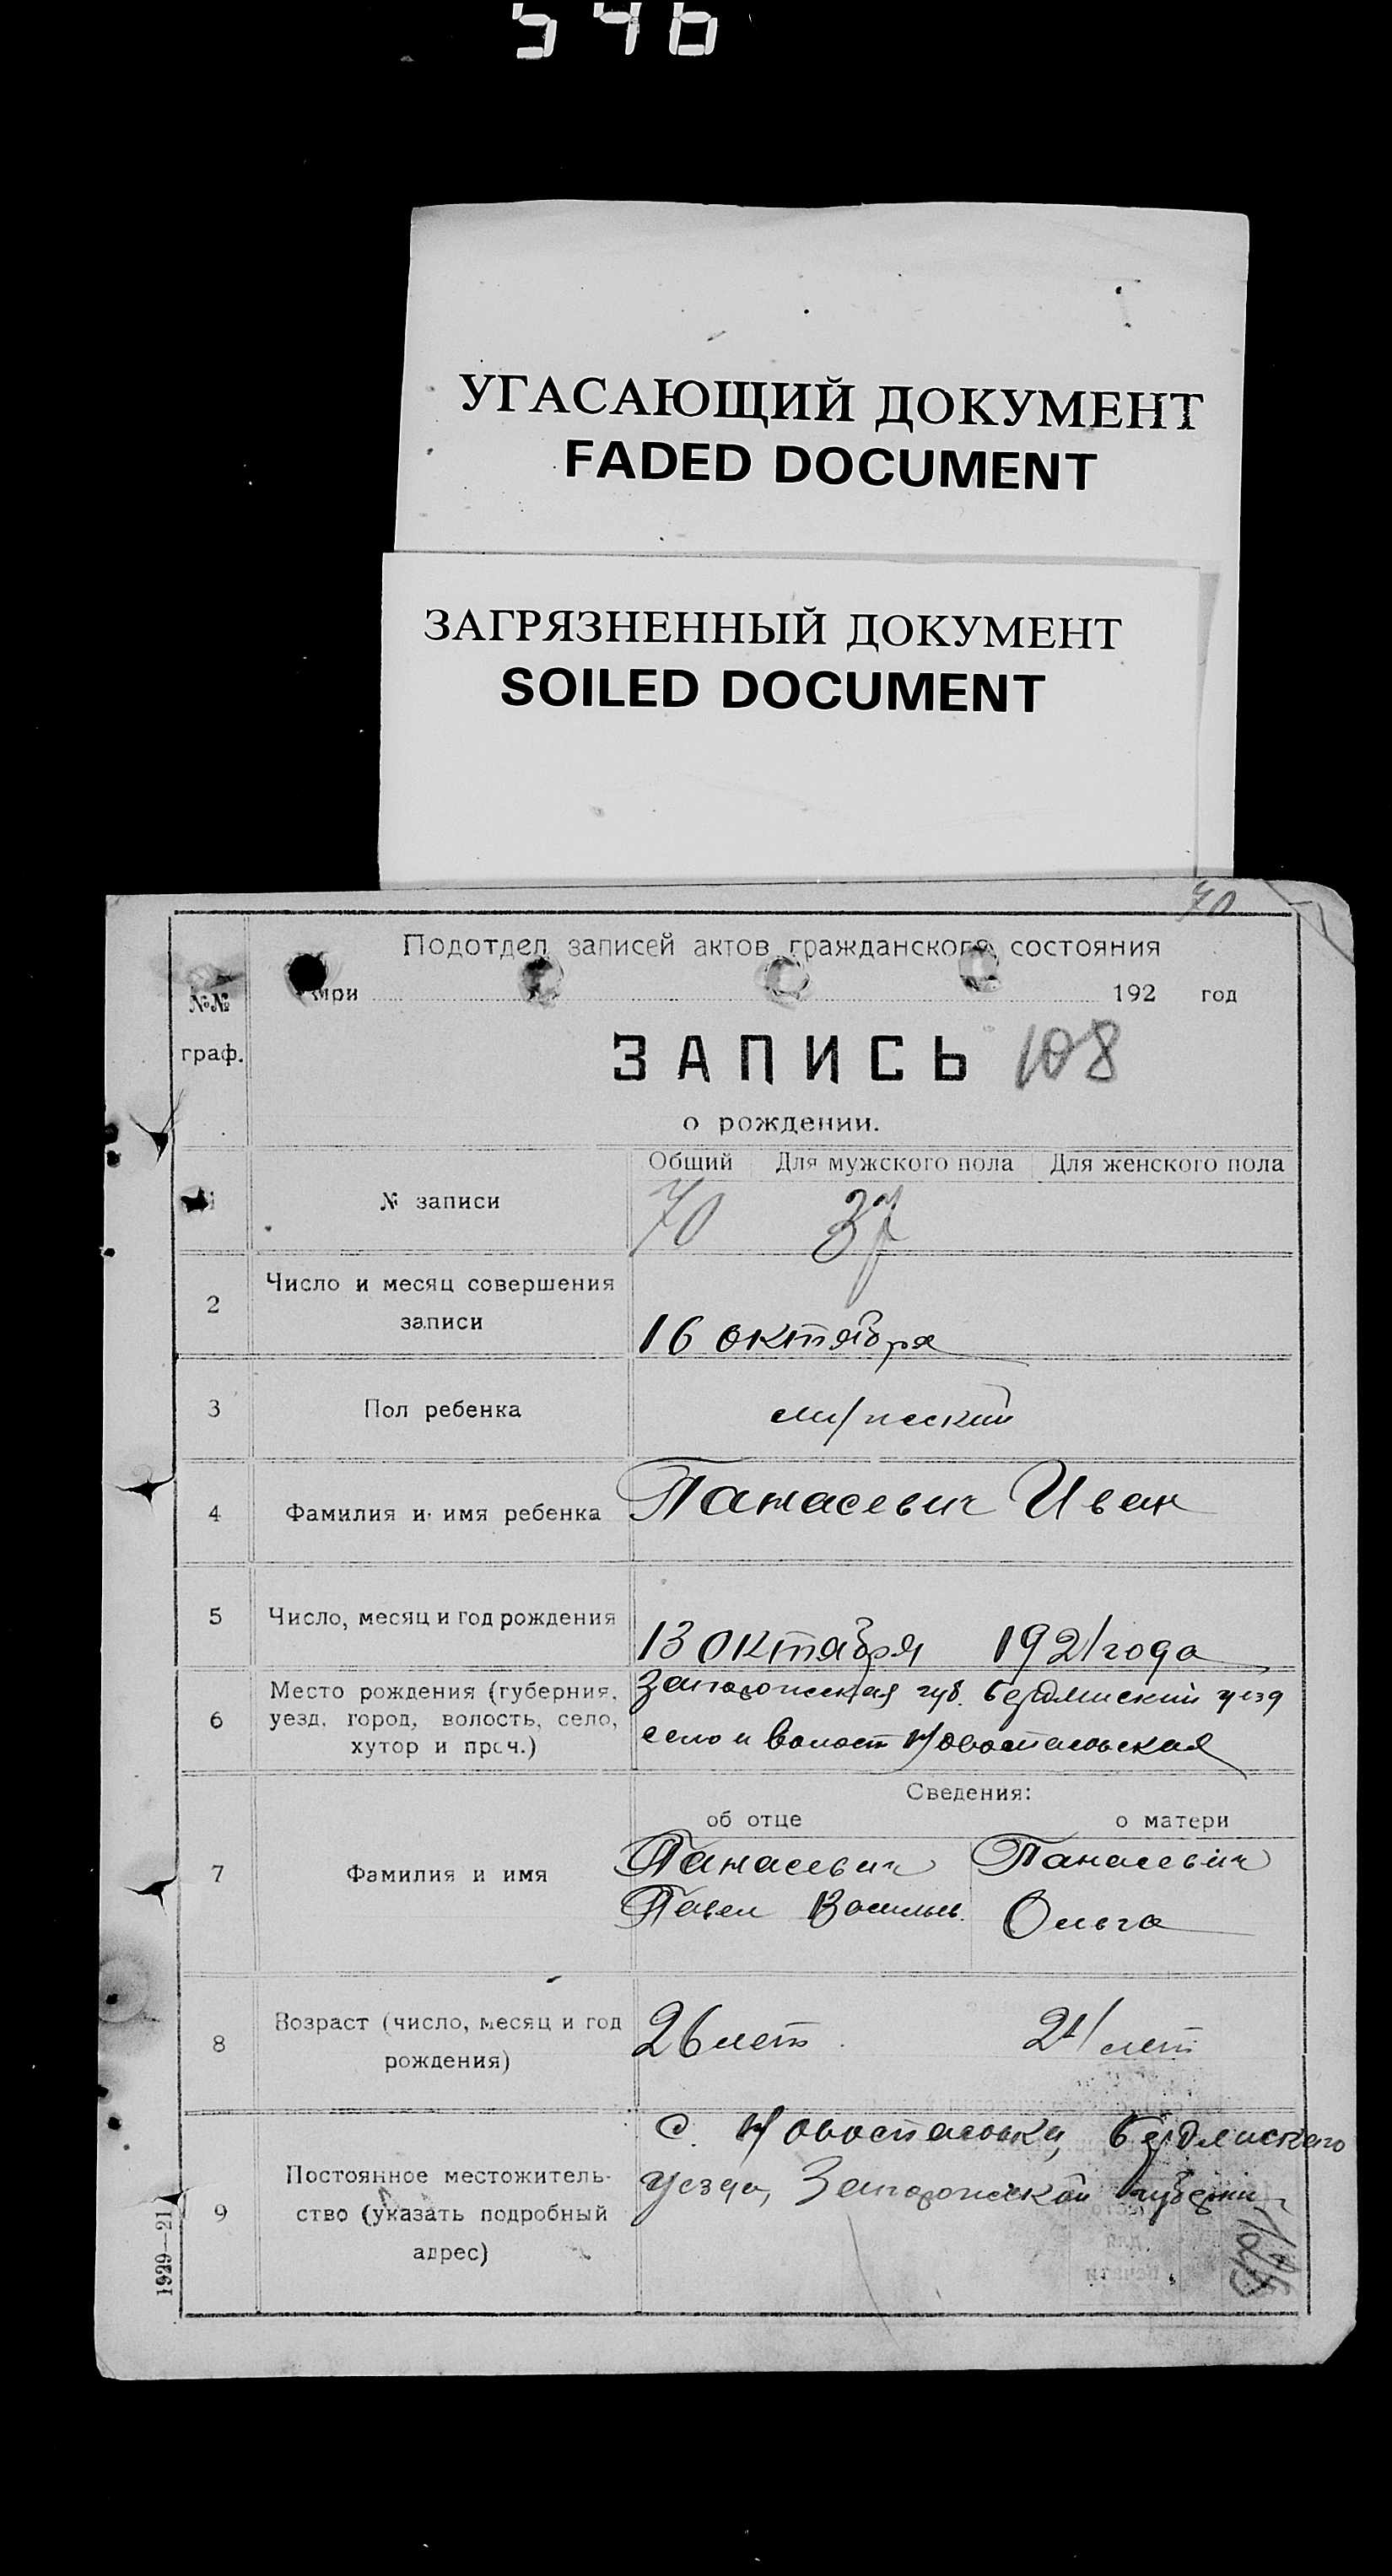 546
УГАСАЮЩИЙ ДОКУМЕНТ
FADED DOCUMENT
ЗАГРЯЗНЕННЫЙ ДОКУМЕНТ
SOILED DOCUMENT
70
Подотдел записей актов гражданского состояния
при 192 год
№№
граф.
ЗАПИСЬ 108
о рождении.
Общий Для мужского пола Для женского пола
№ записи 70 37
2 Число и месяц совершения
записи 16 октября
3 Пол ребенка мужеский
4 Фамилия и имя ребенка Панасевич Иван
5 Число, месяц и год рождения 13 октября 1921 года
6 Место рождения (губерния,
уезд, город, волость, село,
хутор и проч.)
Запорожская губ. Бердянский уезд
село и волост Новоспасовская
Сведения:
об отце о матери
7 Фамилия и имя
Панасевич Панасевич
Павел Васильев. Ольга
8 Возраст (число, месяц и год
рождения)
26 лет 21 лет
9 Постоянное местожитель-
ство (указать подробный
адрес)
с. Новоспасовка, Бердянского
уезда, Запорожской губернии
1929—21